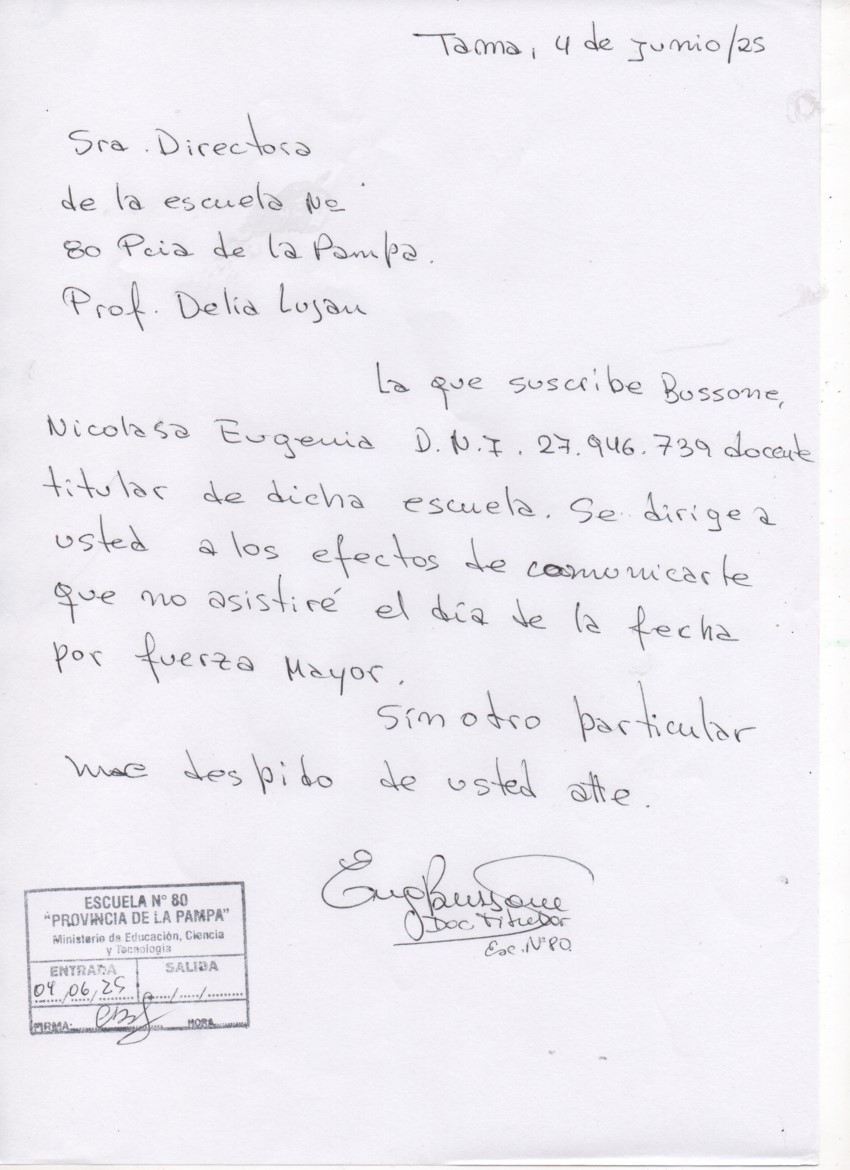 Tama, 4 de Junio/25
Sra. Directora
de la escuela Nº
80 Pcia de la Pampa.
Prof. Delia Lujan
La que suscribe Bussone,
Nicolasa Eugenia D.N.I. 27.946.739 docente
titular de dicha escuela. Se dirige a
usted a los efectos de comunicarle
que no asistiré el día de la fecha
por fuerza Mayor.
Sin otro particular
me despido de usted atte.
Eug Bussone
Doc Titular
Esc. Nº 80
ESCUELA Nº 80
"PROVINCIA DE LA PAMPA"
Ministerio de Educación, Ciencia
y Tecnología
ENTRADA SALIDA
04/06/25 ..../..../....
FIRMA: HORA